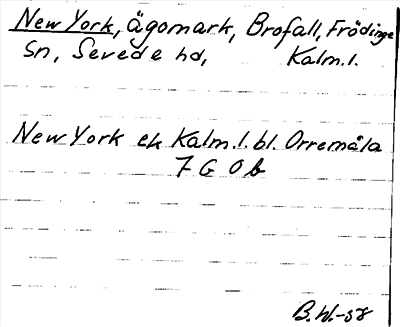 New York, ägomark, Brofall, Frödinge
Sn, Sevede hd, Kalm.l.
New York ek Kalm.l. bl. Orremåla
7 G 0 b
B.W.-58